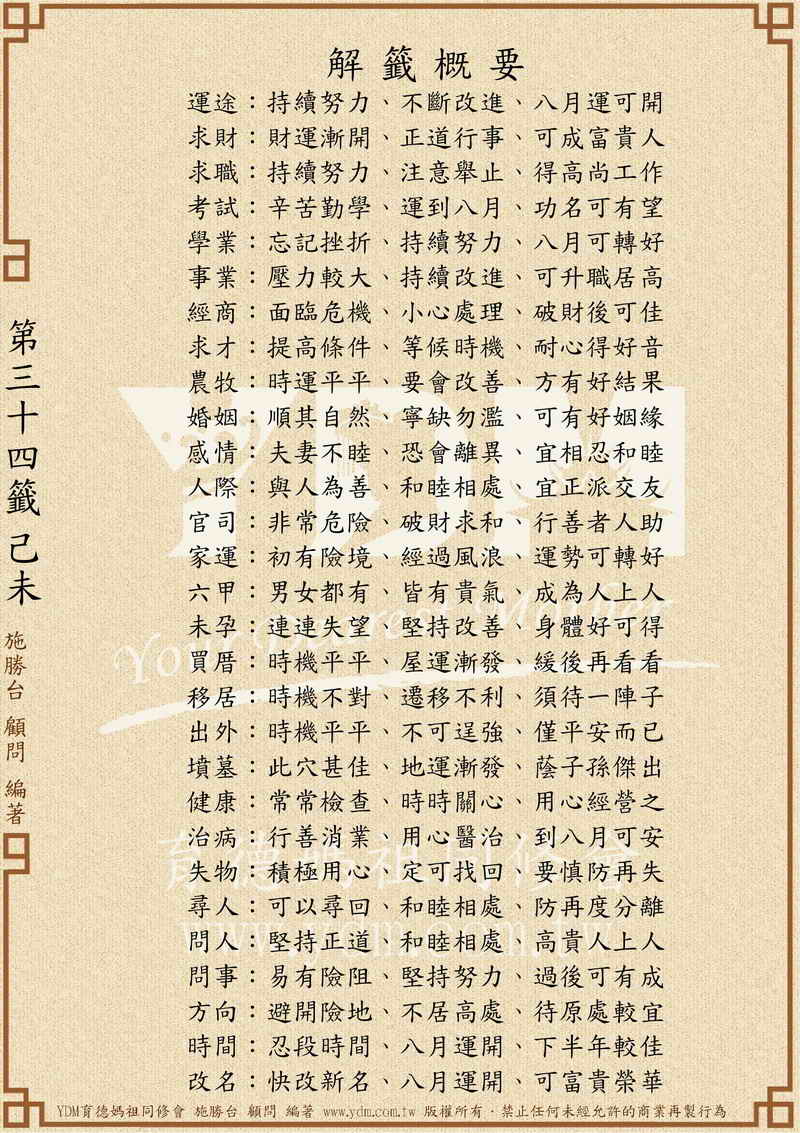 解籤概要
運途：持續努力、不斷改進、八月運可開
求財：財運漸開、正道行事、可成富貴人
求職：持續努力、注意舉止、得高尚工作
考試：辛苦勤學、運到八月、功名可有望
學業：忘記挫折、持續努力、八月可轉好
事業：壓力較大、持續改進、可升職居高
經商：面臨危機、小心處理、破財後可佳
求才：提高條件、等候時機、耐心得好音
農牧：時運平平、要會改善、方有好結果
婚姻：順其自然、寧缺勿濫、可有好姻緣
感情：夫妻不睦、恐會離異、宜相忍和睦
人際：與人為善、和睦相處、宜正派交友
官司：非常危險、破財求和、行善者人助
家運：初有險境、經過風浪、運勢可轉好
六甲：男女都有、皆有貴氣、成為人上人
未孕：連連失望、堅持改善、身體好可得
買厝：時機平平、屋運漸發、緩後再看看
移居：時機不對、遷移不利、須待一陣子
出外：時機平平、不可逞強、僅平安而已
墳墓：此穴甚佳、地運漸發、蔭子孫傑出
健康：常常檢查、時時關心、用心經營之
治病：行善消業、用心醫治、到八月可安
失物：積極用心、定可找回、要慎防再失
尋人：可以尋回、和睦相處、防再度分離
問人：堅持正道、和睦相處、高貴人上人
問事：易有險阻、堅持努力、過後可有成
方向：避開險地、不居高處、待原處較宜
時間：忍段時間、八月運開、下半年較佳
改名：快改新名、八月運開、可富貴榮華
第三十四籤 己未
施勝台 顧問 編著
YDM
Your Dearest Mother
育德媽祖同修會
www.ydm.com.tw
YDM育德媽祖同修會 施勝台 顧問 編著 www.ydm.com.tw 版權所有．禁止任何未經允許的商業再製行為